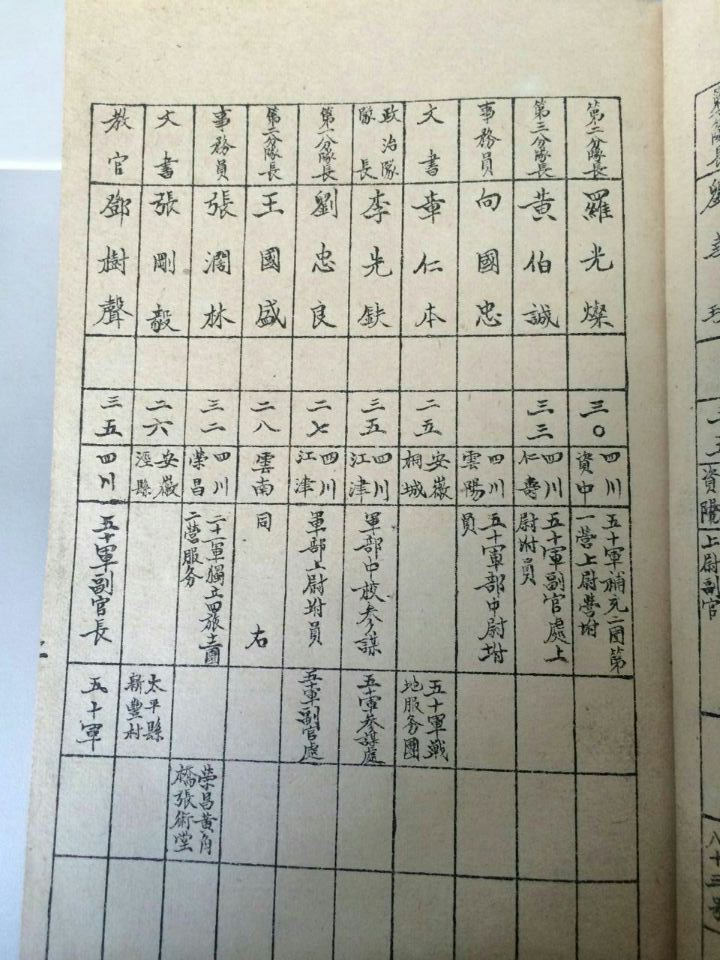 第二分隊長
羅光燦
三〇
四川
資中
五十軍補充二團第
一營上尉營附
第三分隊長
黃伯誠
三三
四川
仁壽
五十軍副官處上
尉附員
事務員
向國忠
四川
雲陽
五十軍部中尉附
員
文書
章仁本
二五
安徽
桐城
五十軍戰
地服务團
政治隊
隊長
李先
三五
四川
江津
軍部中校參謀
五十軍參謀處
第一分隊長
劉忠良
二七
四川
江津
軍部上尉附員
五十軍副官處
第二分隊長
王國盛
二八
雲南
同右
事務員
張濶林
三二
四川
榮昌
二十一軍獨立四旅
二營服务
榮昌黃角
橋張術堂
文書
張剛毅
二六
安徽
涇縣
太平縣
新豐村
教官
鄧樹聲
三五
四川
五十軍副官長
五十軍
資陽
上尉副官